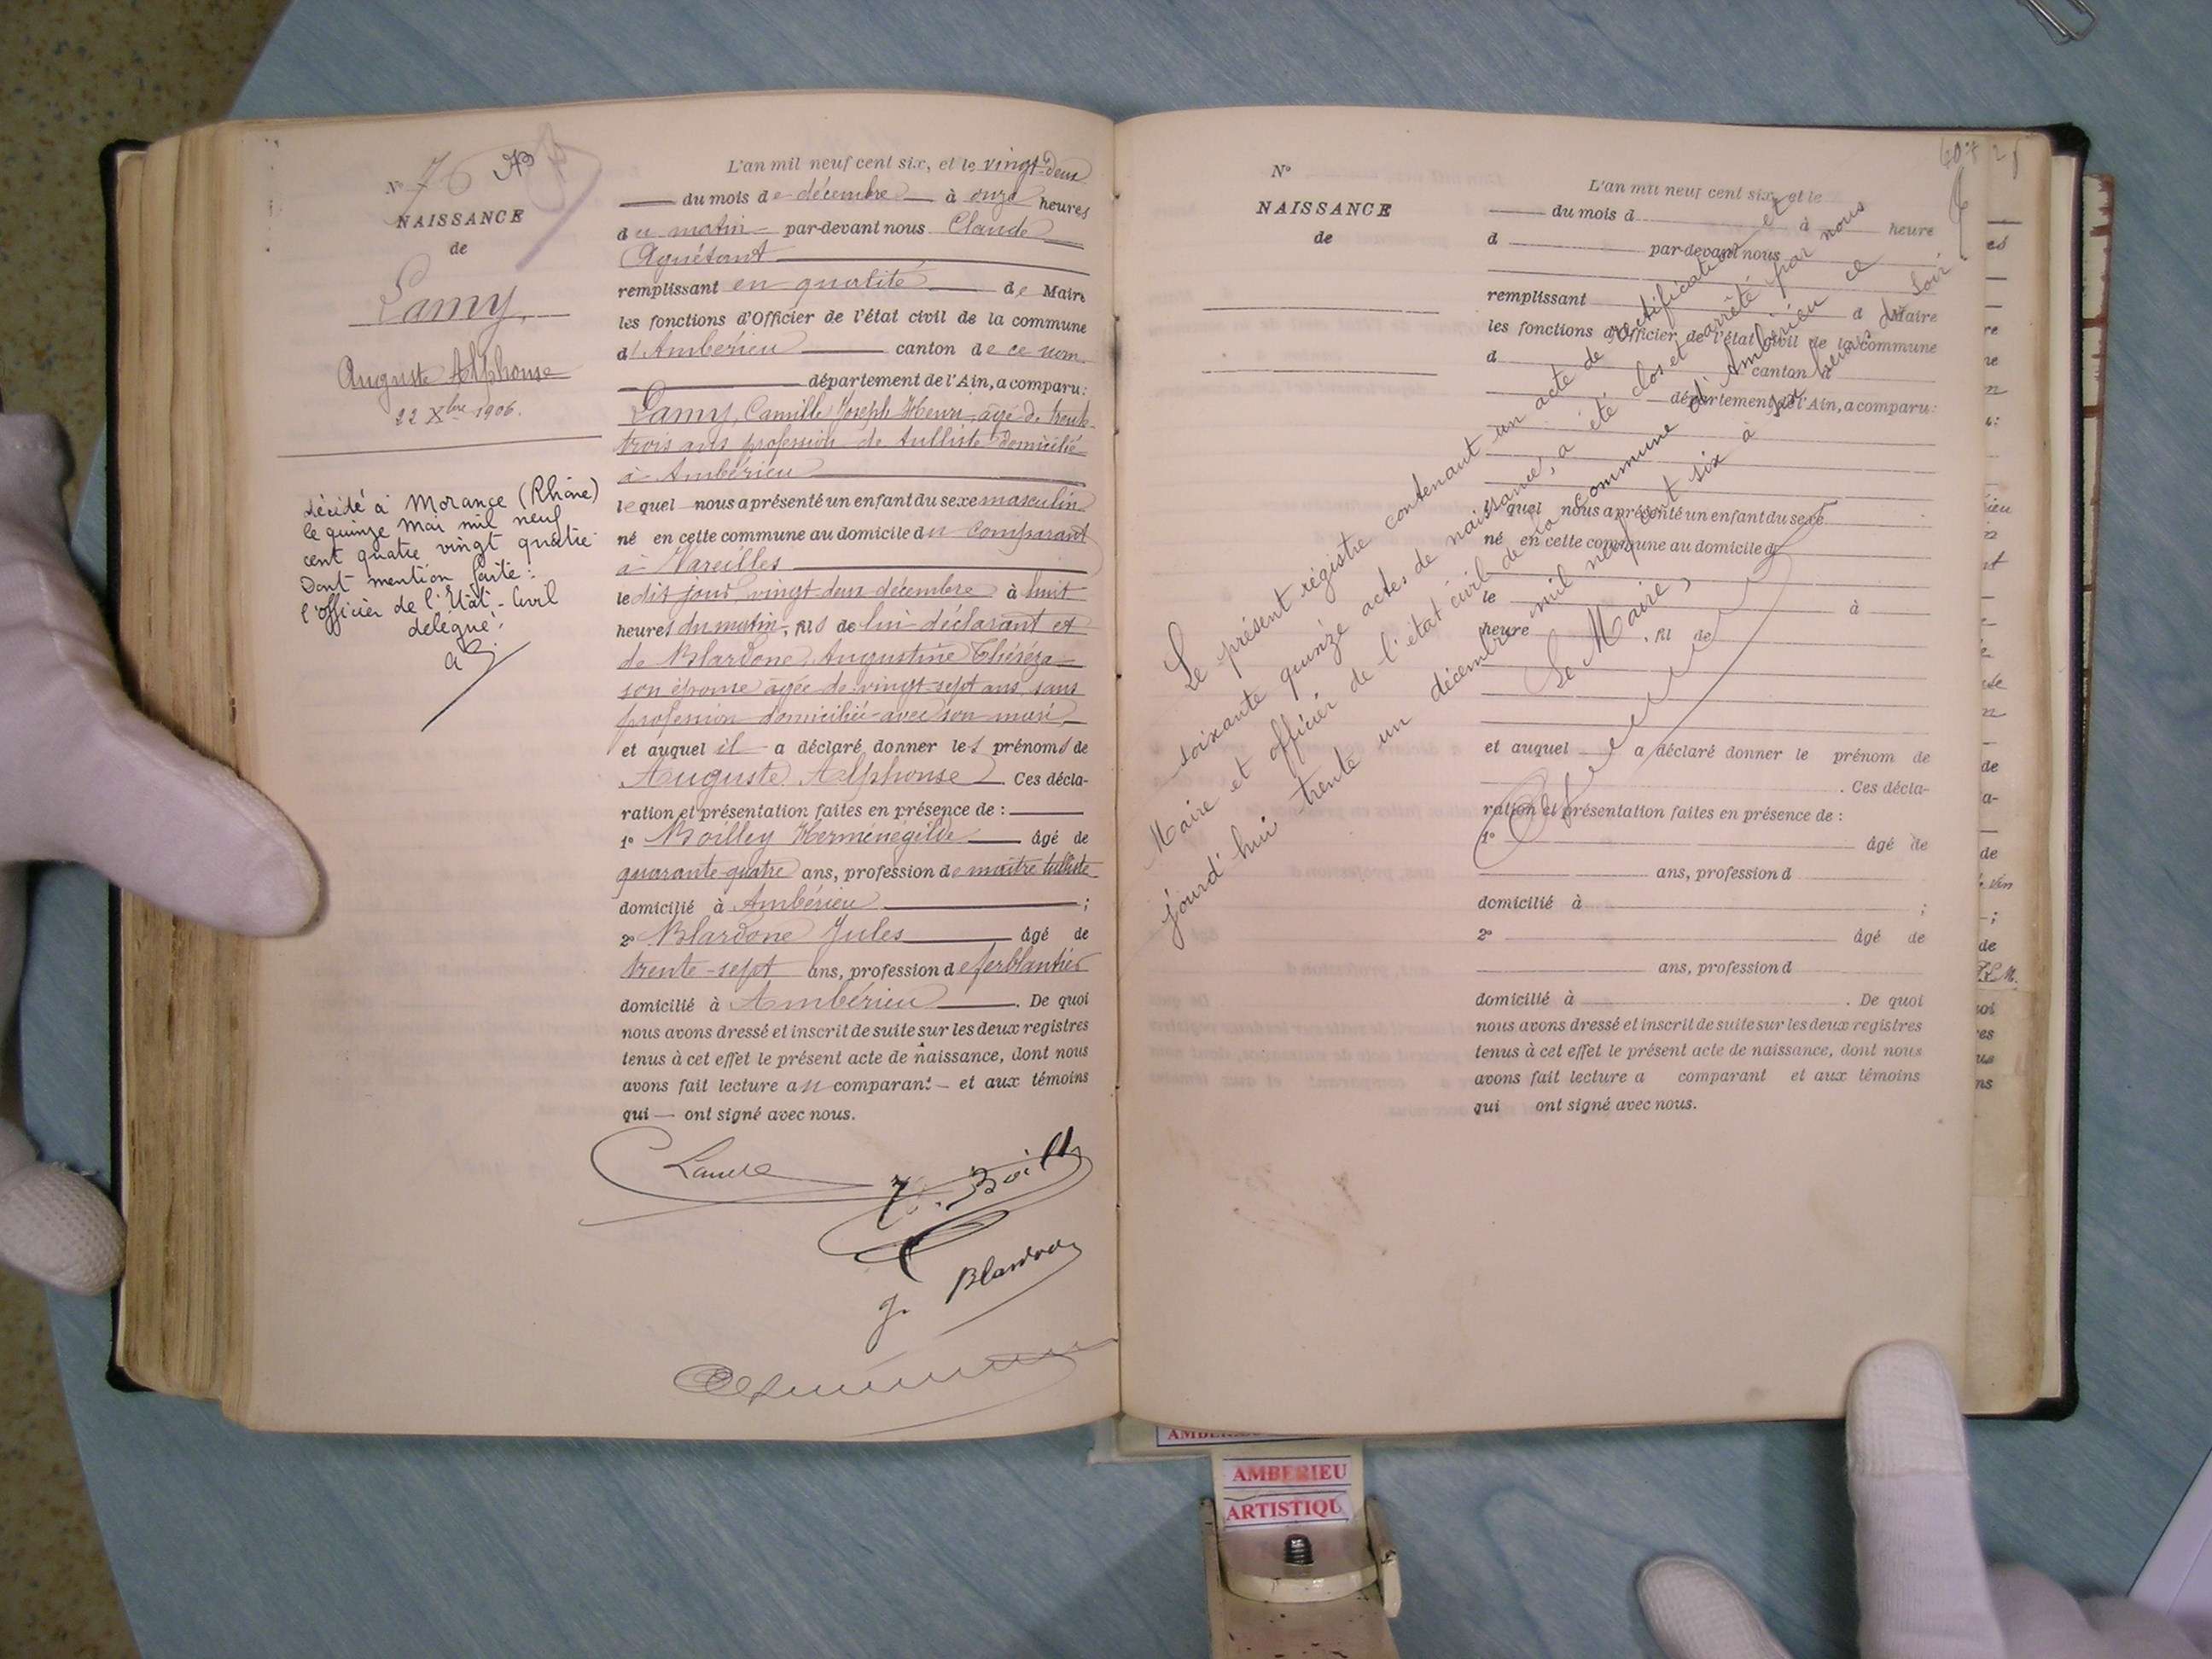 N° 76
NAISSANCE
de
Lamy,
Auguste Alphonse
22 Xbre 1906.
décédé à Morancé (Rhône)
le quinze Mai mil neuf
cent quatre vingt quatre
Dont mention faite:
l'officier de l'Etat-Civil
délégué:
L'an mil neuf cent six, et le vingt-deux
du mois de décembre à onze heures
du matin par-devant nous Claude
Aguétant
remplissant en qualité de Maire
les fonctions d'Officier de l'état civil de la commune
d'Ambérieu canton de ce nom
département de l'Ain, a comparu:
Lamy, Camille Joseph Henri, âgé de trente-
trois ans profession de tulliste domicilié
à Ambérieu
lequel nous a présenté un enfant du sexe masculin
né en cette commune au domicile du comparant
à Vareilles
le dit jour vingt-deux décembre à huit
heures du matin, fils de lui déclarant et
de Blardone, Augustine Théréza
son épouse âgée de vingt-sept ans, sans
profession domiciliée avec son mari
et auquel il a déclaré donner les prénoms de
Auguste Alphonse. Ces décla-
ration et présentation faites en présence de :
1° Boilley Herménégilde âgé de
quarante-quatre ans, profession de maître tulliste
domicilié à Ambérieu ;
2° Blardone Jules âgé de
trente-sept ans, profession de ferblantier
domicilié à Ambérieu. De quoi
nous avons dressé et inscrit de suite sur les deux registres
tenus à cet effet le présent acte de naissance, dont nous
avons fait lecture au comparant et aux témoins
qui ont signé avec nous.
J. Blardone
N°
NAISSANCE
de
L'an mil neuf cent six, et le
du mois d à heure
d par-devant nous
remplissant d Maire
les fonctions d'Officier de l'état civil de la commune
d canton d
département de l'Ain, a comparu:
lequel nous a présenté un enfant du sexe
né en cette commune au domicile d
le à
heure , fil de
et auquel a déclaré donner le prénom de
. Ces décla-
ration et présentation faites en présence de :
1° âgé de
ans, profession d
domicilié à ;
2° âgé de
ans, profession d
domicilié à . De quoi
nous avons dressé et inscrit de suite sur les deux registres
tenus à cet effet le présent acte de naissance, dont nous
avons fait lecture a comparant et aux témoins
qui ont signé avec nous.
Le présent régistre contenant un acte de rectification et
soixante quinze actes de naissance, a été clos et arrêté par nous
Maire et officier de l'état civil de la commune d'Ambérieu ce
jourd'hui trente un décembre mil neuf cent six à six heures du soir
Le Maire,
AMBERIEU
ARTISTIQU